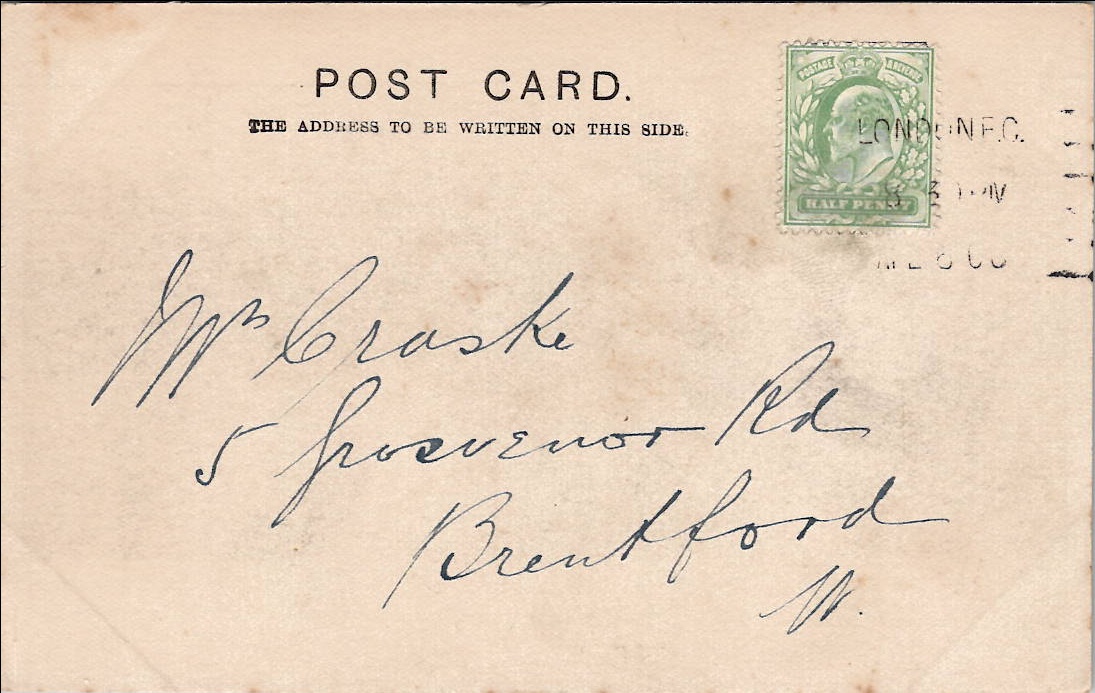 POST CARD.
THE ADDRESS TO BE WRITTEN ON THIS SIDE.
POSTAGE & REVENUE
HALF PENNY
LONDON E.C.
Mrs Craske
5 Grosvenor Rd
Brentford
W.